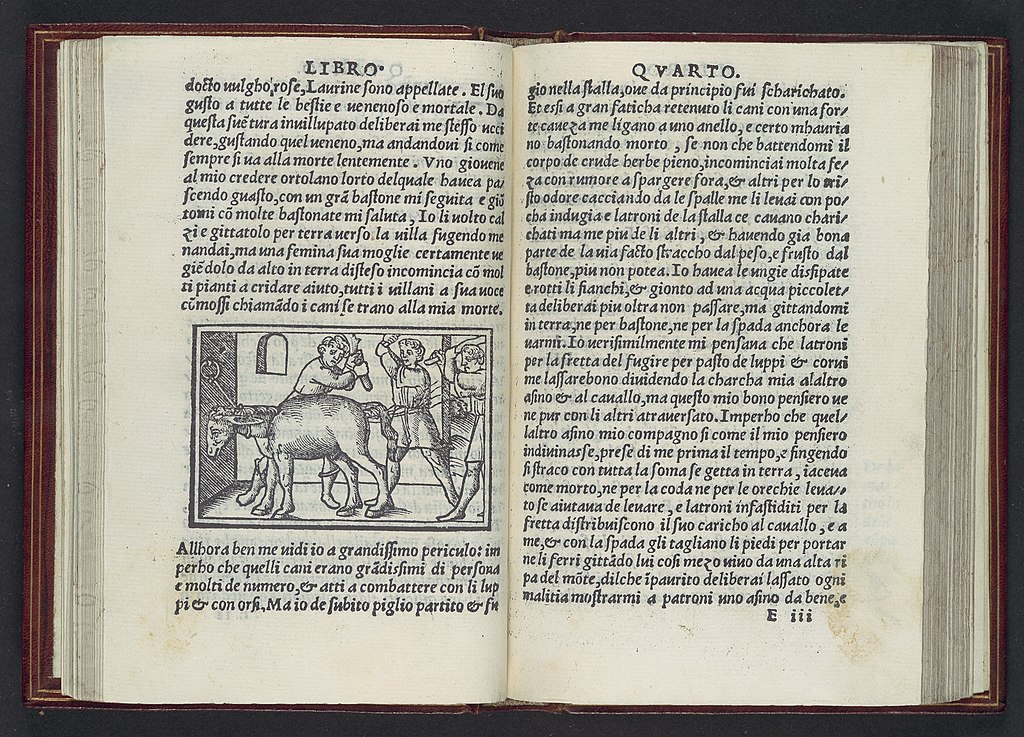 LIBRO.
docto vulgho, rose, Laurine sono appellate. El suo
gusto a tutte le bestie e venenoso e mortale. Da
questa suētura invillupato deliberai me stesso ucci
dere, gustando quel veneno, ma andandovi si come
sempre si va alla morte lentemente. Vno giovene
al mio credere ortolano lorto delquale havea pa/
scendo guasto, con un grā bastone mi seguita e giō
tomi cō molte bastonate mi saluta, Io li volto cal
zi e gittatolo per terra verso la villa fugendo me
nandai, ma una femina sua moglie certamente ve
giēdolo da alto in terra disteso incomincia cō mol
ti pianti a cridare aiuto, tutti i villani a sua voce
cōmossi chiamādo i cani se trano alla mia morte.
Allhora ben me vidi io a grandissimo periculo: im
perho che quelli cani erano grādissimi di persona
e molti de numero, & atti a combattere con li lup
pi & con orsi, Ma io de subito piglio partito & fu
QVARTO.
gio nella stalla, ove da principio fui scharichato.
Et essi a gran faticha retenuto li cani con una for/
te caveza me ligano a uno anello, e certo mhauria
no bastonando morto, se non che battendomi il
corpo de crude herbe pieno, incominciai molta fe/
za con rumore a spargere fora, & altri per lo tri/
sto odore cacciando da le spalle me li levai con po/
cha indugia e latroni de la stalla ce cavano chari/
chati ma me piu de li altri, & havendo gia bona
parte de la via facto straccho dal peso, e frusto dal
bastone, piu non potea. Io havea le ungie dissipate
e rotti li fianchi, & gionto ad una acqua piccolet/
ta deliberai piu oltra non passare, ma gittandomi
in terra, ne per bastone, ne per la spada anchora le
varmi. Io verisimilmente mi pensava che latroni
per la fretta del fugire per pasto de luppi & corvi
me lassarebono dividendo la charcha mia alaltro
asino & al cavallo, ma questo mio bono pensiero ve
ne pur con li altri atraversato. Imperho che quel/
laltro asino mio compagno si come il mio pensiero
indivinasse, prese di me prima il tempo, e fingendo
si straco con tutta la soma se getta in terra, iaceva
come morto, ne per la coda ne per le orechie leva/
to se aiutava de levare, e latroni infastiditi per la
fretta distribuiscono il suo caricho al cavallo, e a
me, & con la spada gli tagliano li piedi per portar
ne li ferri gittādo lui cosi mezo vivo da una alta ri
pa del mōte, dilche ipaurito deliberai lassato ogni
malitia mostrarmi a patroni uno asino da bene, e
E iii